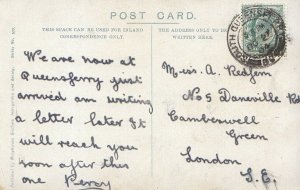 POST CARD.
THIS SPACE CAN BE USED FOR INLAND
CORRESPONDENCE ONLY.
THE ADDRESS ONLY TO BE
WRITTEN HERE.
We are now at
Queensferry just
arrived am writing
a letter later It
will reach you
soon after this
one Percy
Miss. A. Redfern
No 9 Daneville Rd
Camberwell
Green
London
S.E.